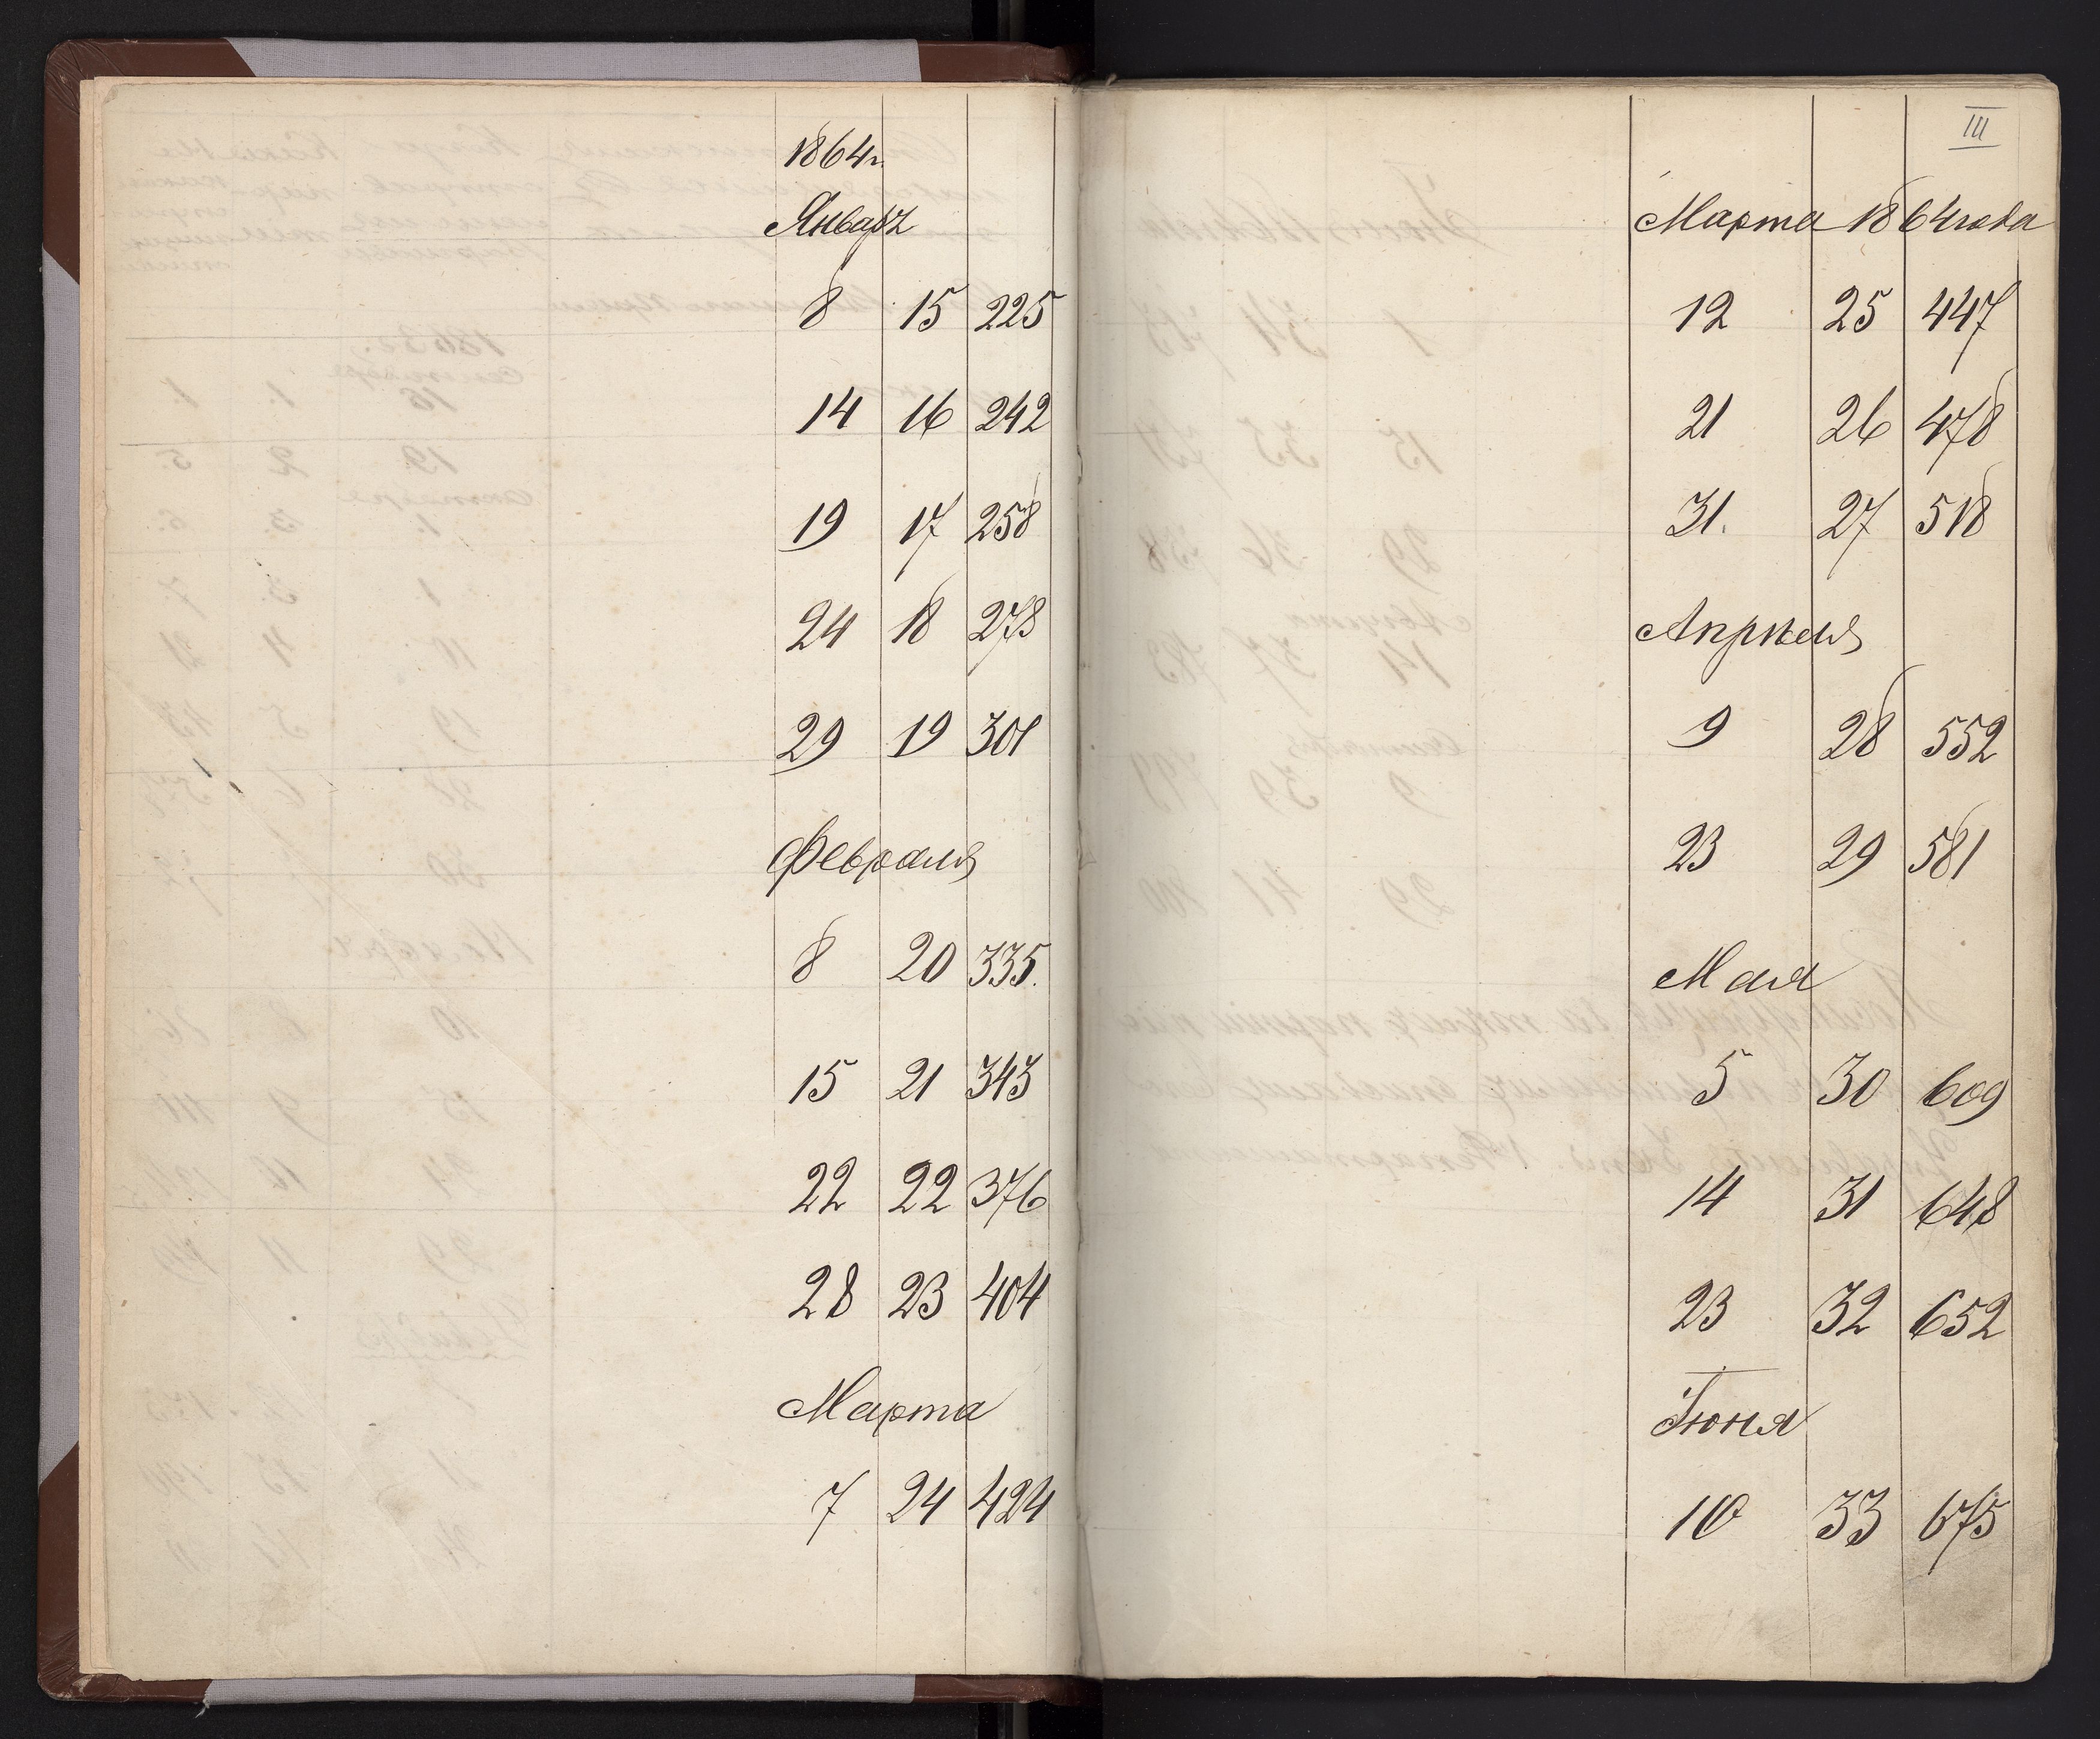 1864 г.
Январь
8 15 225
14 16 242
19 17 258
24 18 278
29 19 301
Февраля
8 20 335.
15 21 343
22 22 376
28 23 404
Марта
7 24 424
III
Марта 1864 года
12 25 447
21 26 478
31. 27 518
Апрѣля
9 28 552
23 29 581
Мая
5 30 609
14 31 648
23 32 652
Іюня
10 33 675